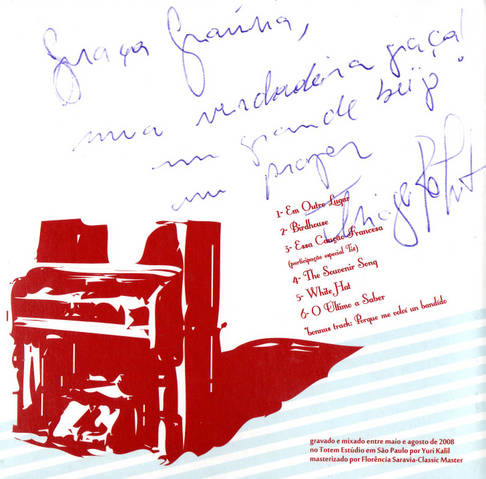 Graça Graúna,
uma verdadeira graça!
um grande beijo!
um prazer
1- Em Outro Lugar
2- Birdhouse
3- Essa Canção Francesa
(participação especial Tiê)
4- The Souvenir Song
5- White Hat
6- O Último a Saber
*bonnus track: Porque me velei un bandido
gravado e mixado entre maio e agosto de 2008
no Totem Estúdio em São Paulo por Yuri Kalil
masterizado por Florência Saravia-Classic Master